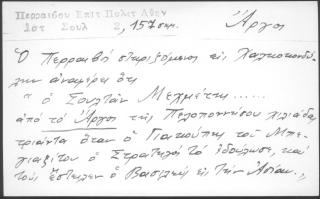 Περραιβου Επιτ Πολιτ Αθην
Ιστ Σουλ 2, 157 σημ. Ἄργος
Ὁ Περραιβός στηριζόμενος εἰς Χαλκοκονδύ-
λην ἀναφέρει ὅτι
" ὁ Σουλτάν Μεχμέτης .....
ἀπό τό Ἄργος τῆς Πελοποννήσου χιλιάδας
τριάντα ὅταν ὁ Γιακούπης τοῦ Μπε-
γιαζίτου ὁ Στρατηγός τό ἐδούλωσε, καί
τούς ἔστειλεν ὁ Βασιλεύς εἰς τήν Ἀσίαν. "